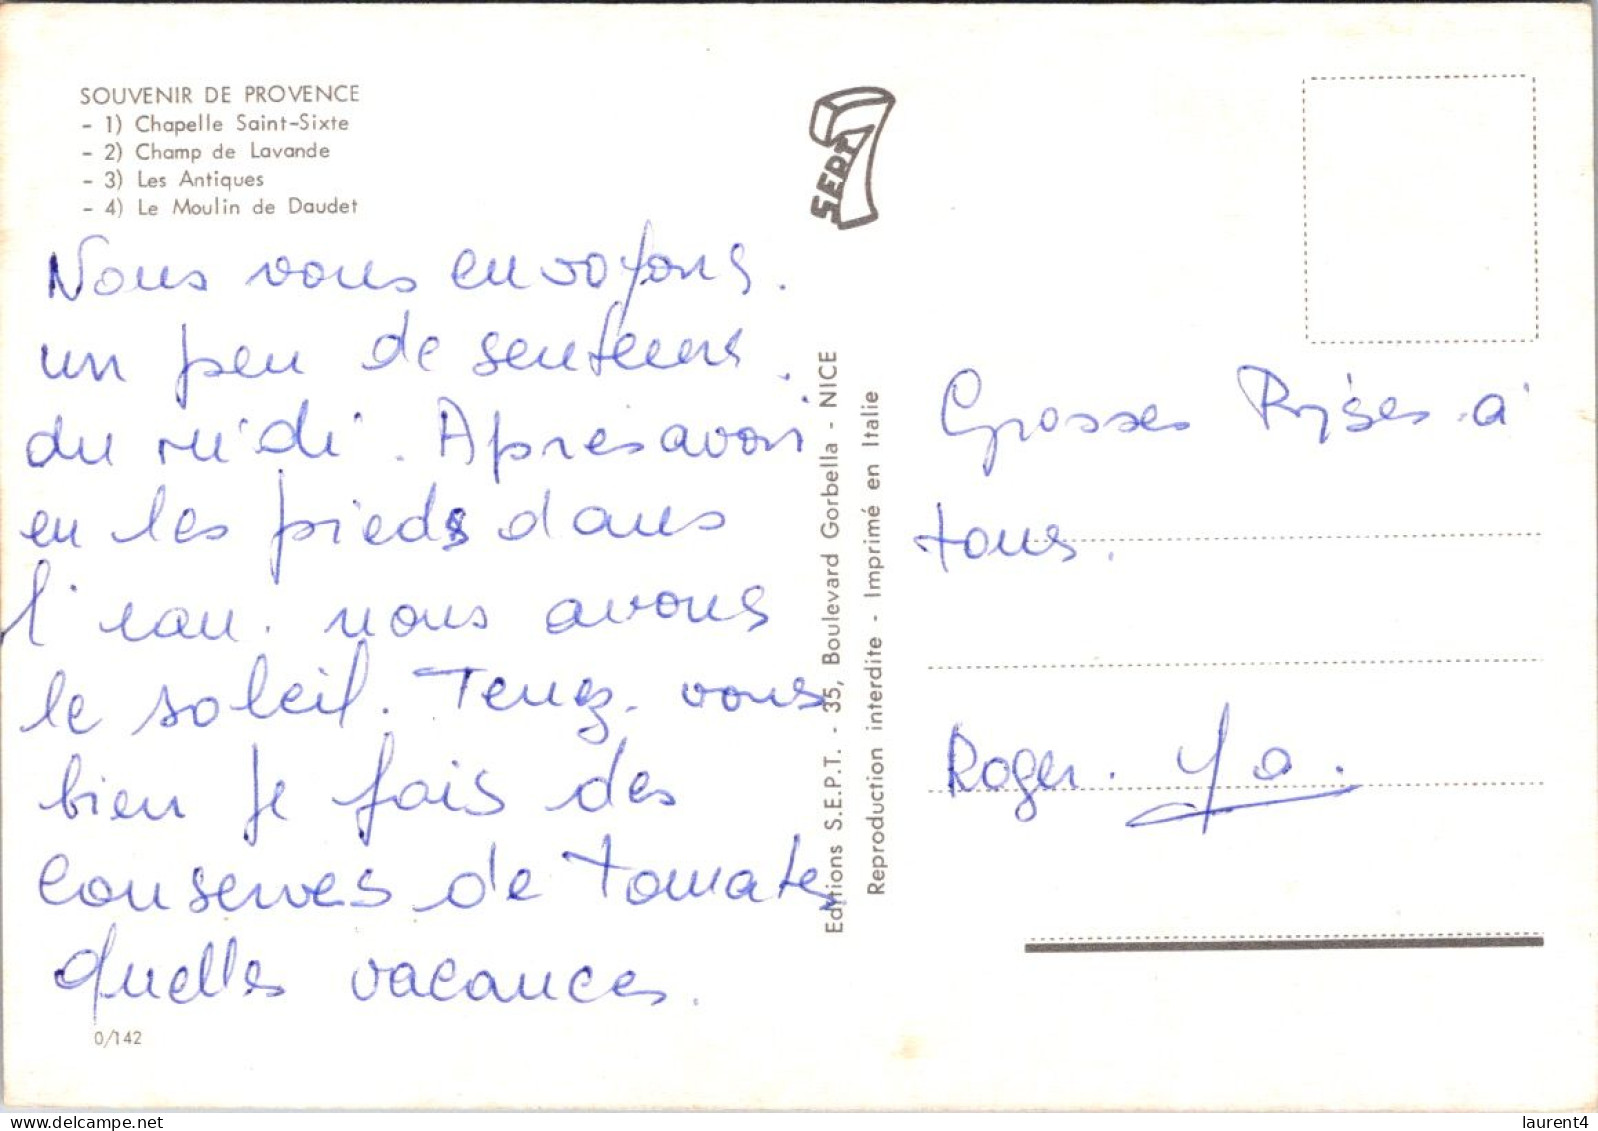 SOUVENIR DE PROVENCE
- 1) Chapelle Saint-Sixte
- 2) Champ de Lavande
- 3) Les Antiques
- 4) Le Moulin de Daudet
Nous vous envoyons.
un peu de senteurs.
du midi. Apres avoir
eu les pieds dans
l'eau. nous avons
le soleil. Tenez-vous
bien je fais des
conserves de tomates
Quelles vacances.
0/142
SEPT 7
Editions S.E.P.T. - 35, Boulevard Gorbella - NICE
Reproduction interdite - Imprimé en Italie
Grosses Bises à
tous.
Roger.
laurent4